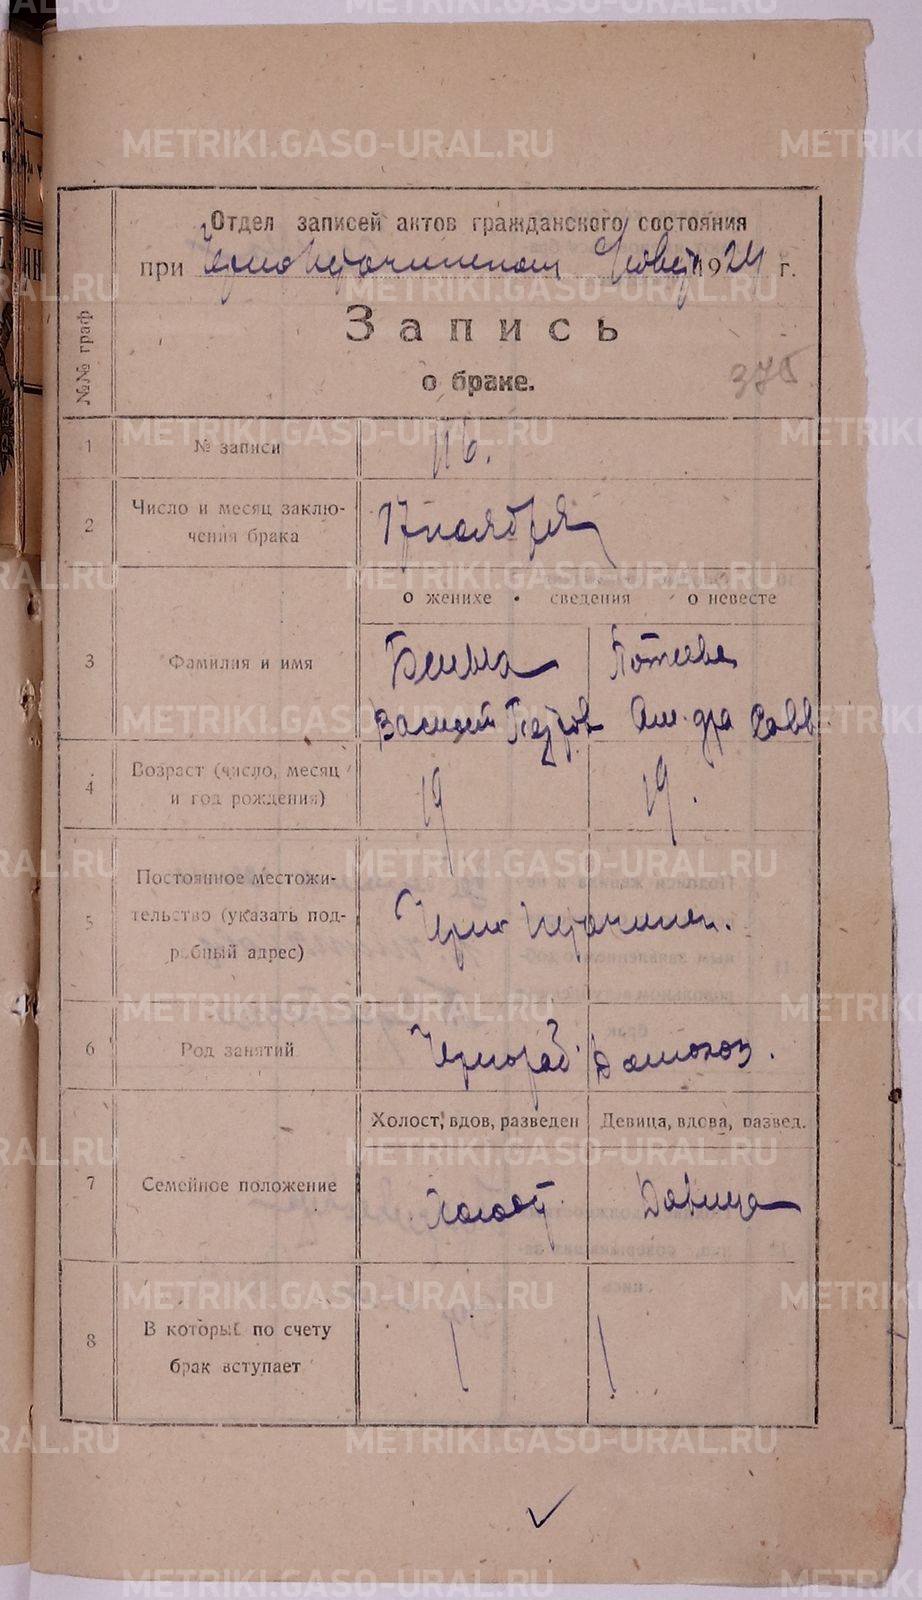 Отдел записей актов гражданского состояния
при Черноисточинском 1924 г.
№№ граф
Запись
о браке.
375
1 № записи 116.
2 Число и месяц заклю-
чения брака
17 ноября
о женихе • сведения о невесте
3 Фамилия и имя
Василий Петров Ал-дра Савв.
4 Возраст (число, месяц
и год рождения)
19 19.
5 Постоянное местожи-
тельство (указать под-
робный адрес)
Черно Источинск.
6 Род занятий Чернораб. Домохоз.
Холост, вдов, разведен Девица, вдова, развед.
7 Семейное положение Холост Девица
8 В который по счету
брак вступает
1 1
METRIKI.GASO-URAL.RU